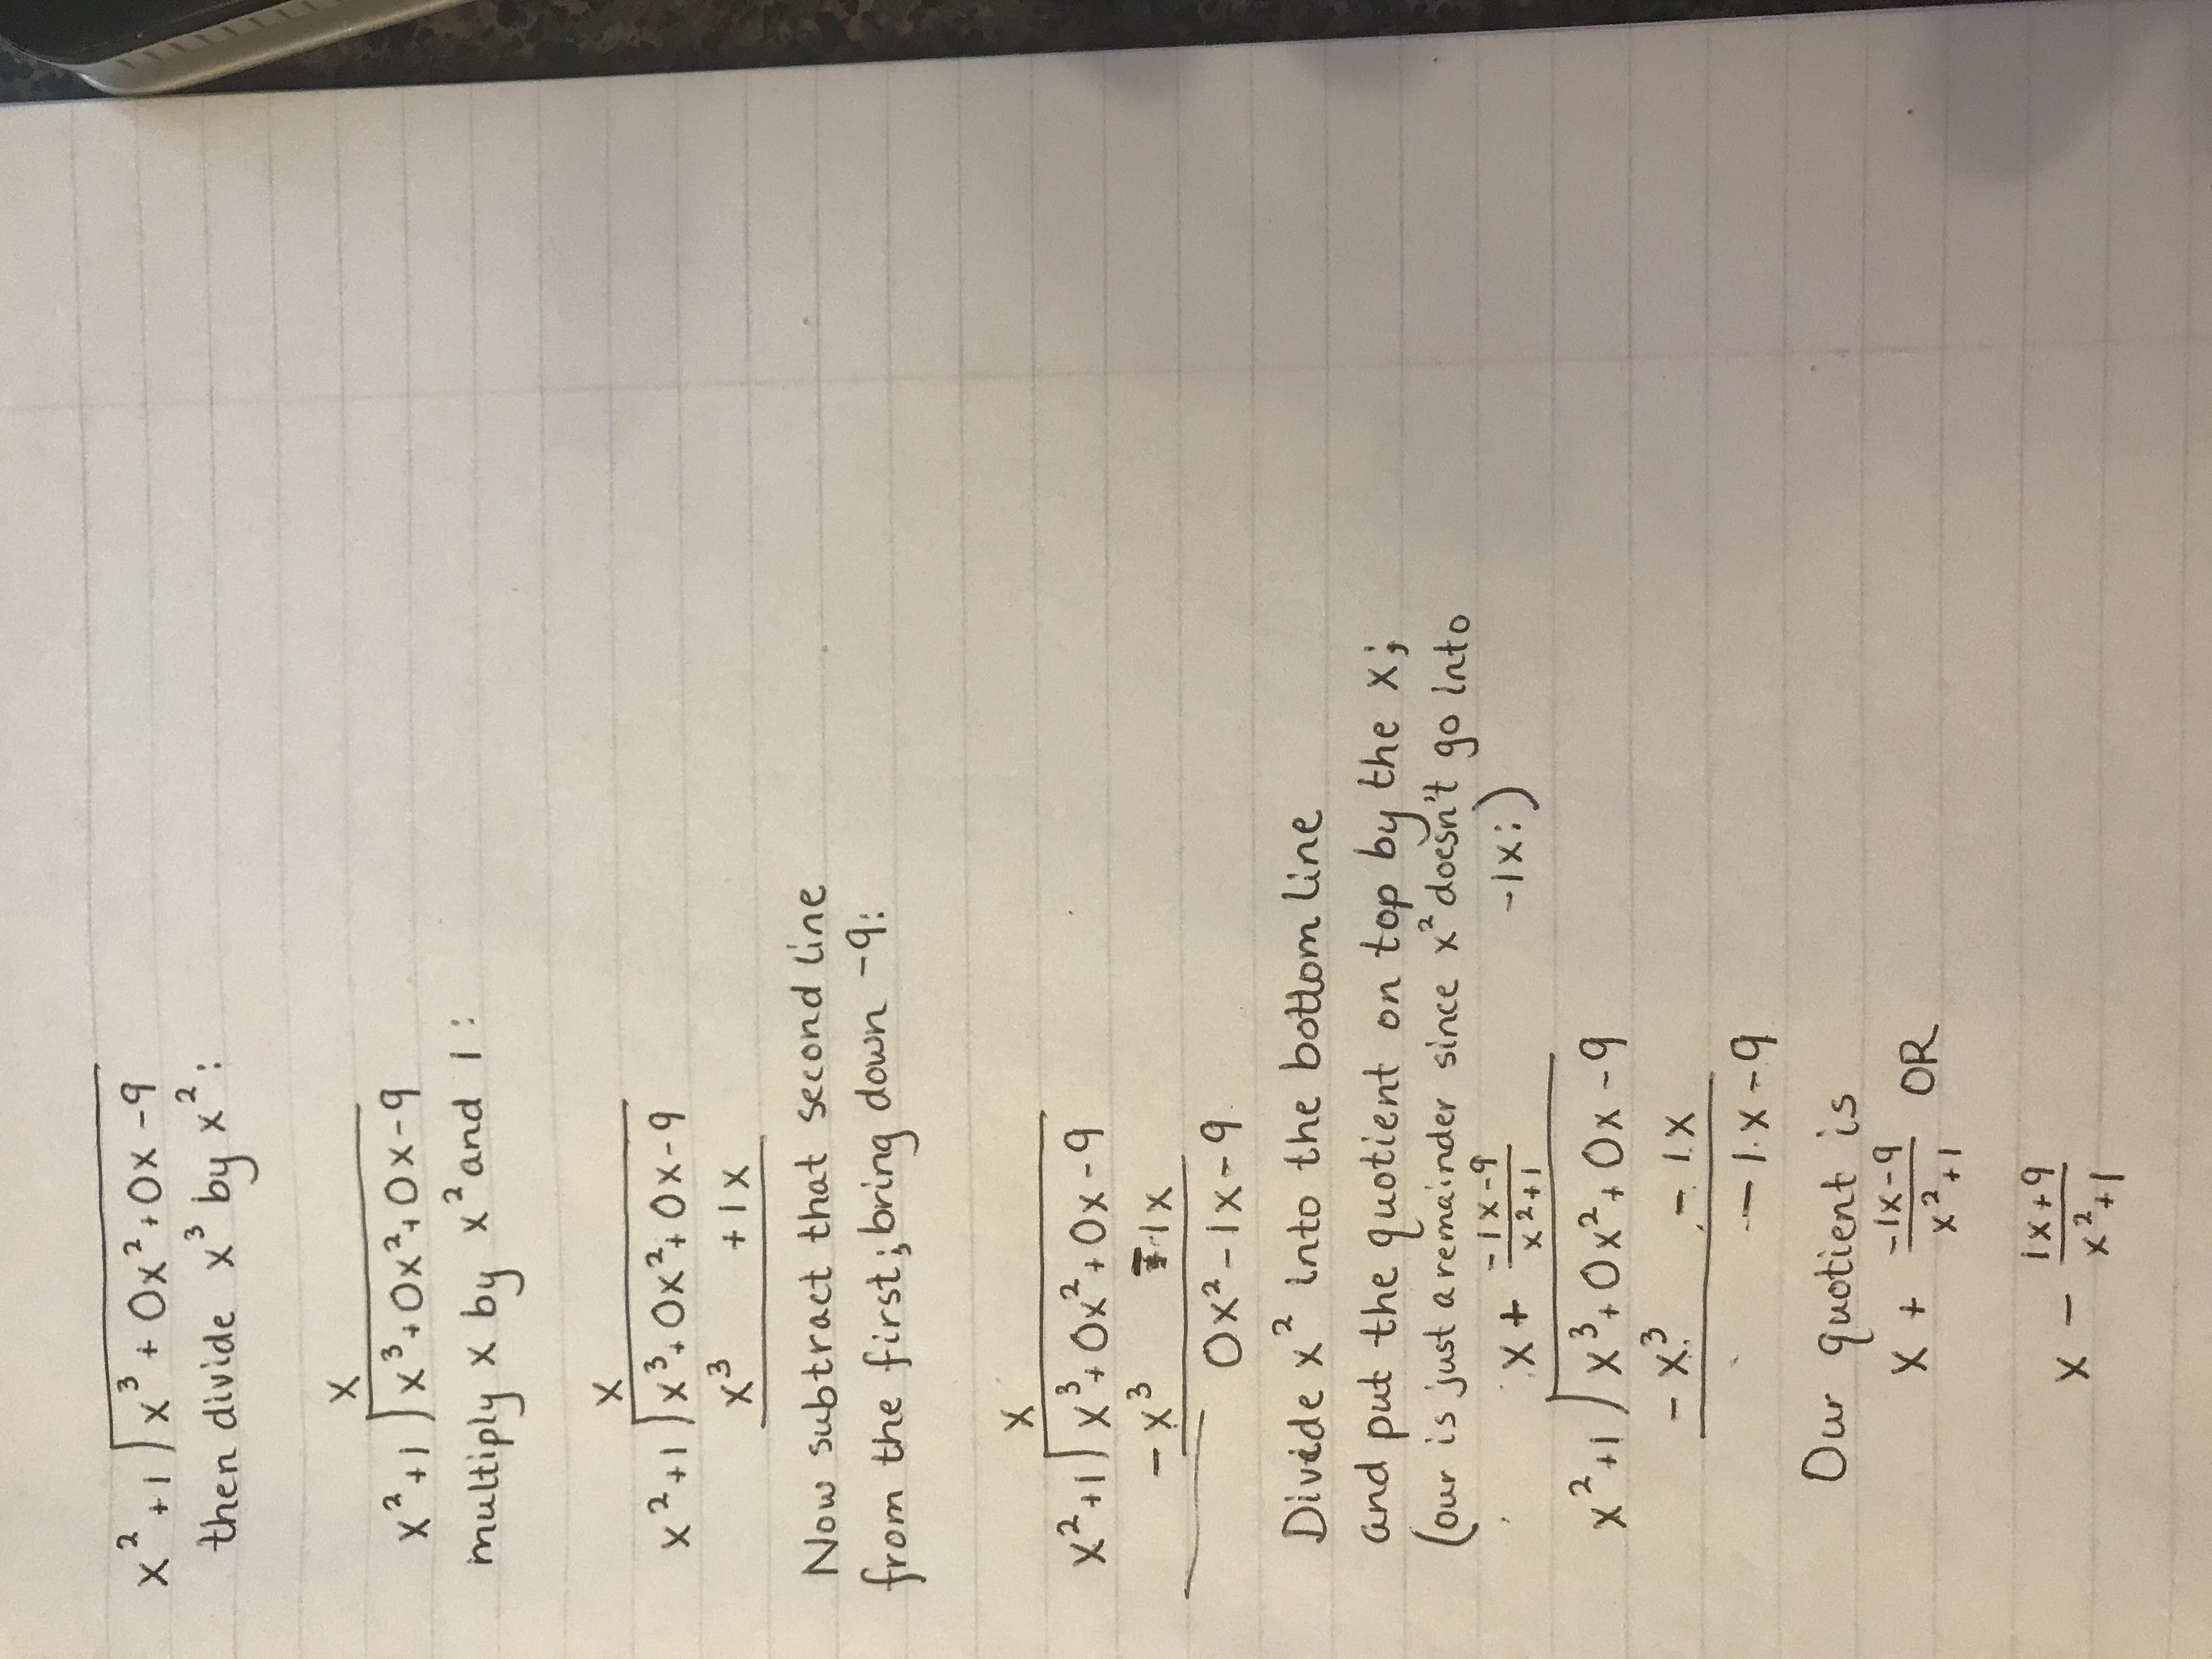 x² + 1 ) x³ + 0x² + 0x - 9
then divide x³ by x²:
x
x² + 1 ) x³ + 0x² + 0x - 9
multiply x by x² and 1:
x
x² + 1 ) x³ + 0x² + 0x - 9
x³ + 1x
Now subtract that second line
from the first; bring down -9:
x
x² + 1 ) x³ + 0x² + 0x - 9
- x³ - 1x
0x² - 1x - 9
Divide x² into the bottom line
and put the quotient on top by the x;
(our is just a remainder since x² doesn't go into
-1x:)
x + \frac{-1x-9}{x²+1}
x² + 1 ) x³ + 0x² + 0x - 9
- x³ - 1x
- 1x - 9
Our quotient is
x + \frac{-1x-9}{x²+1} OR
x - \frac{1x+9}{x²+1}